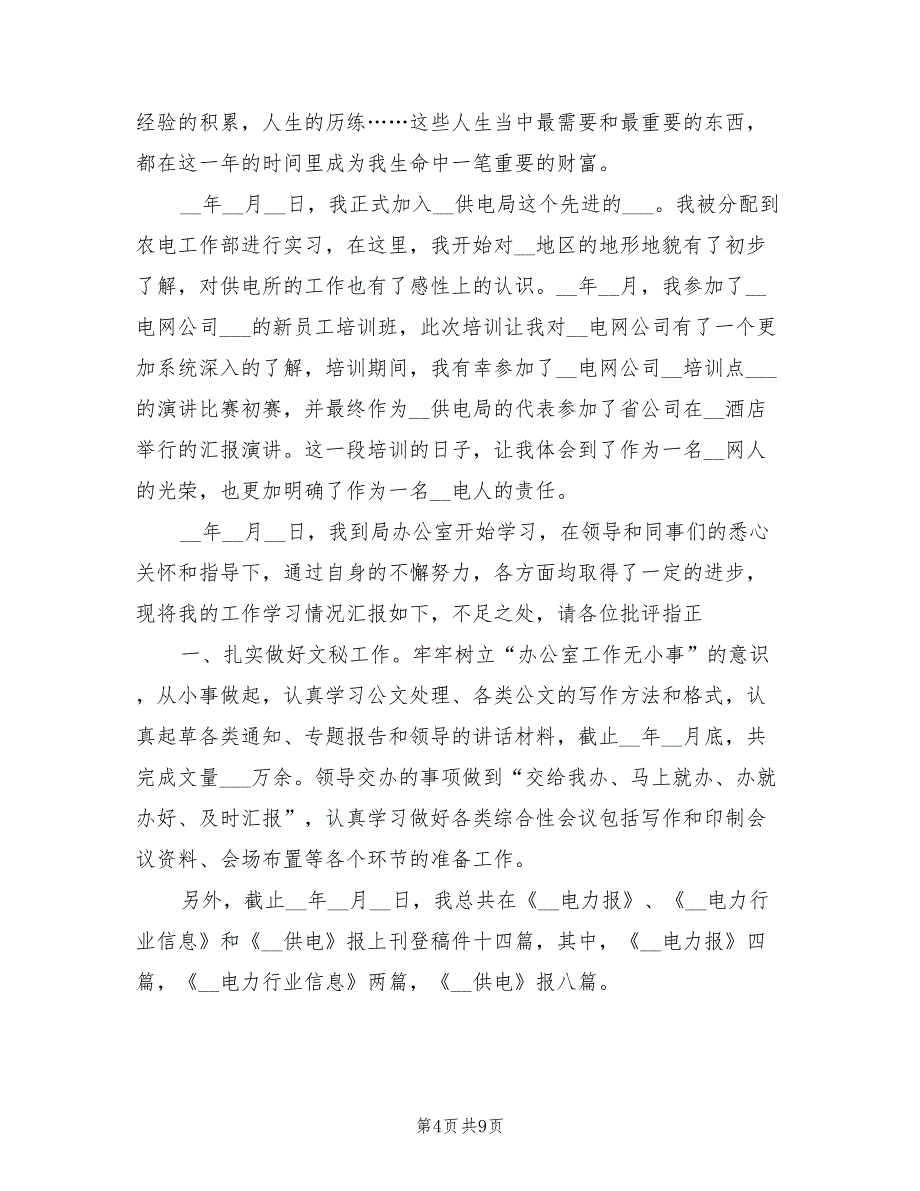 经验的积累，人生的历练……这些人生当中最需要和最重要的东西，
都在这一年的时间里成为我生命中一笔重要的财富。
__年__月__日，我正式加入__供电局这个先进的___。我被分配到
农电工作部进行实习，在这里，我开始对__地区的地形地貌有了初步
了解，对供电所的工作也有了感性上的认识。__年__月，我参加了__
电网公司___的新员工培训班，此次培训让我对__电网公司有了一个更
加系统深入的了解，培训期间，我有幸参加了__电网公司__培训点___
的演讲比赛初赛，并最终作为__供电局的代表参加了省公司在__酒店
举行的汇报演讲。这一段培训的日子，让我体会到了作为一名__网人
的光荣，也更加明确了作为一名__电人的责任。
__年__月__日，我到局办公室开始学习，在领导和同事们的悉心
关怀和指导下，通过自身的不懈努力，各方面均取得了一定的进步，
现将我的工作学习情况汇报如下，不足之处，请各位批评指正
一、扎实做好文秘工作。牢牢树立“办公室工作无小事”的意识
，从小事做起，认真学习公文处理、各类公文的写作方法和格式，认
真起草各类通知、专题报告和领导的讲话材料，截止__年__月底，共
完成文量___万余。领导交办的事项做到“交给我办、马上就办、办就
办好、及时汇报”，认真学习做好各类综合性会议包括写作和印制会
议资料、会场布置等各个环节的准备工作。
另外，截止__年__月__日，我总共在《__电力报》、《__电力行
业信息》和《__供电》报上刊登稿件十四篇，其中，《__电力报》四
篇，《__电力行业信息》两篇，《__供电》报八篇。
第4页 共9页